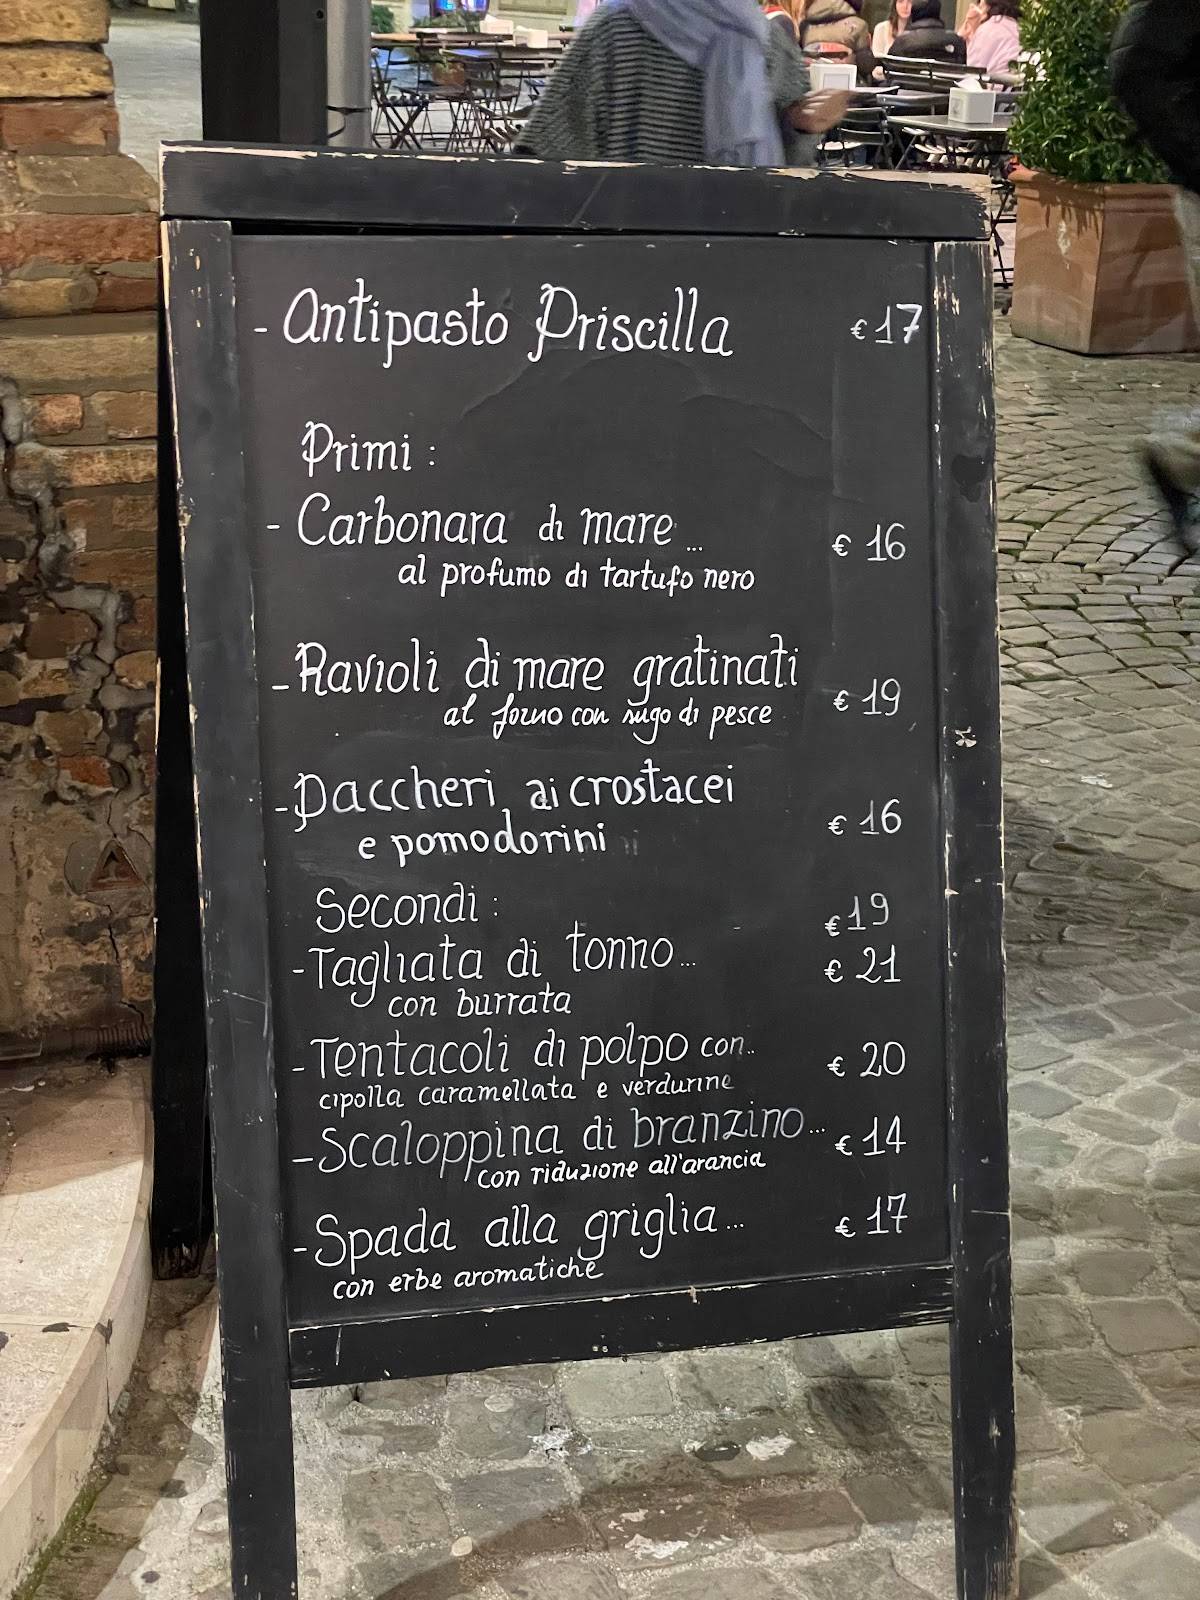 - Antipasto Priscilla € 17
Primi :
- Carbonara di mare... € 16
al profumo di tartufo nero
- Ravioli di mare gratinati € 19
al forno con sugo di pesce
- Paccheri ai crostacei € 16
e pomodorini
Secondi : € 19
- Tagliata di tonno... € 21
con burrata
- Tentacoli di polpo con.. € 20
cipolla caramellata e verdurine
- Scaloppina di branzino... € 14
con riduzione all'arancia
- Spada alla griglia... € 17
con erbe aromatiche